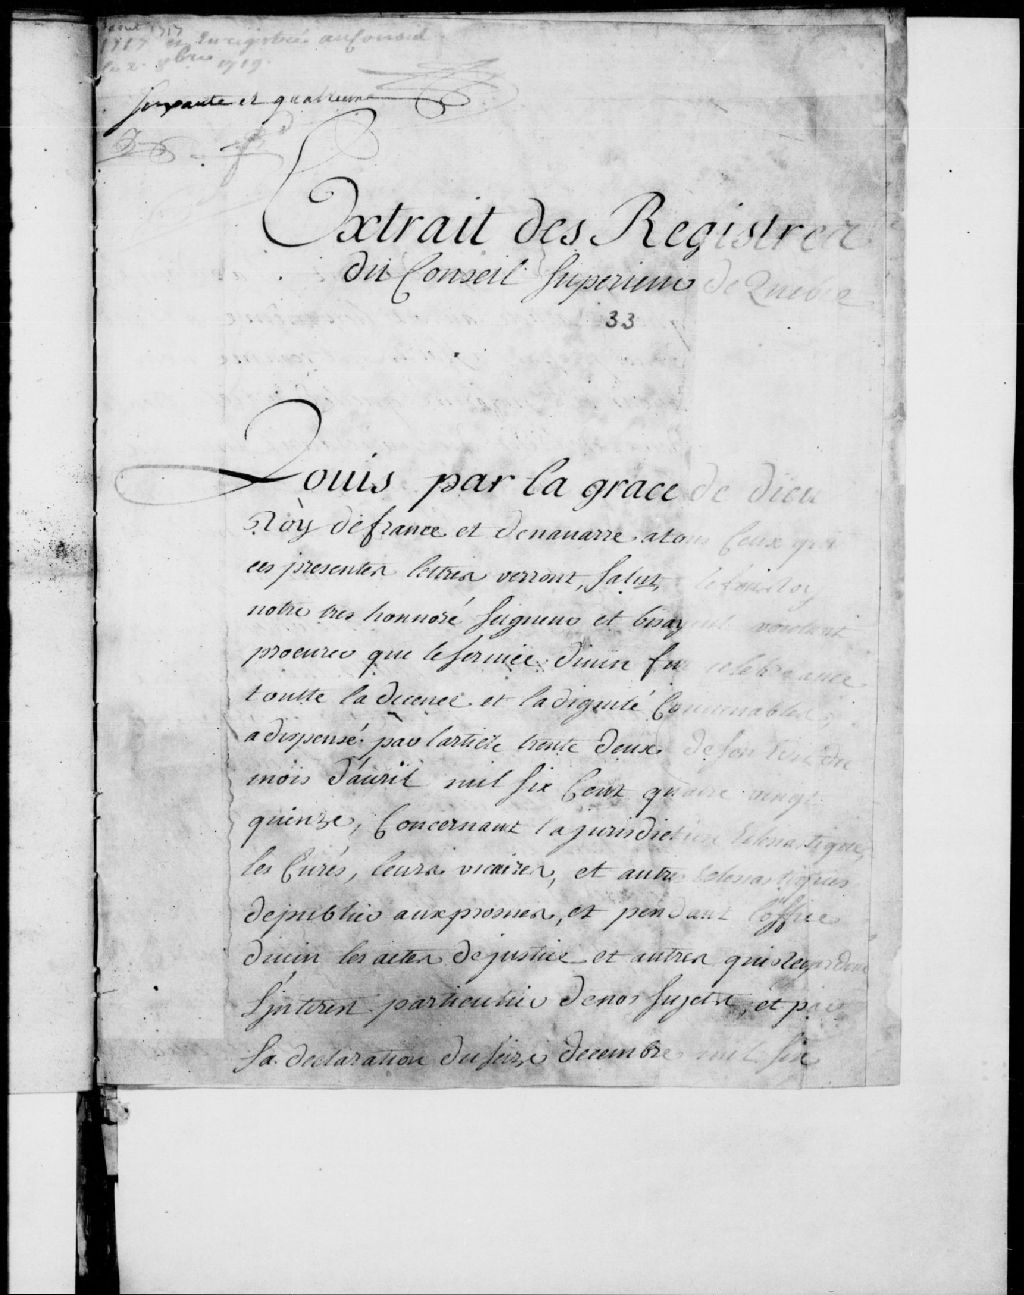 avril 1717
1717 et Enregistrée au Conseil
le 2. 8bre 1719.
soixante et quatrieme
Extrait des Registres
du Conseil Superieur de Quebec
33
Louis par la grace de dieu
Roy de france et de navarre atous Ceux qui
ces presentes lettres verront, Salut, le feu Roy
notre tres honnoré Seigneur et bisayeul voulant
procurer que le Service divin fut celebré avec
toutte la decence et la dignité Convenables,
à dispensé par l'article trente deux de son Edit du
mois d'avril mil six Cent quatre vingt
quinze, Concernant la jurisdiction Eclesiastique,
les Curés, leurs vicaires, et autres Eclesiastiques
de publier aux prosnes, et pendant l'office
divin les actes de justice et autres qui regardent
l'jnterest particulier de nos Sujets, et par
sa declaration du seize decembre mil six